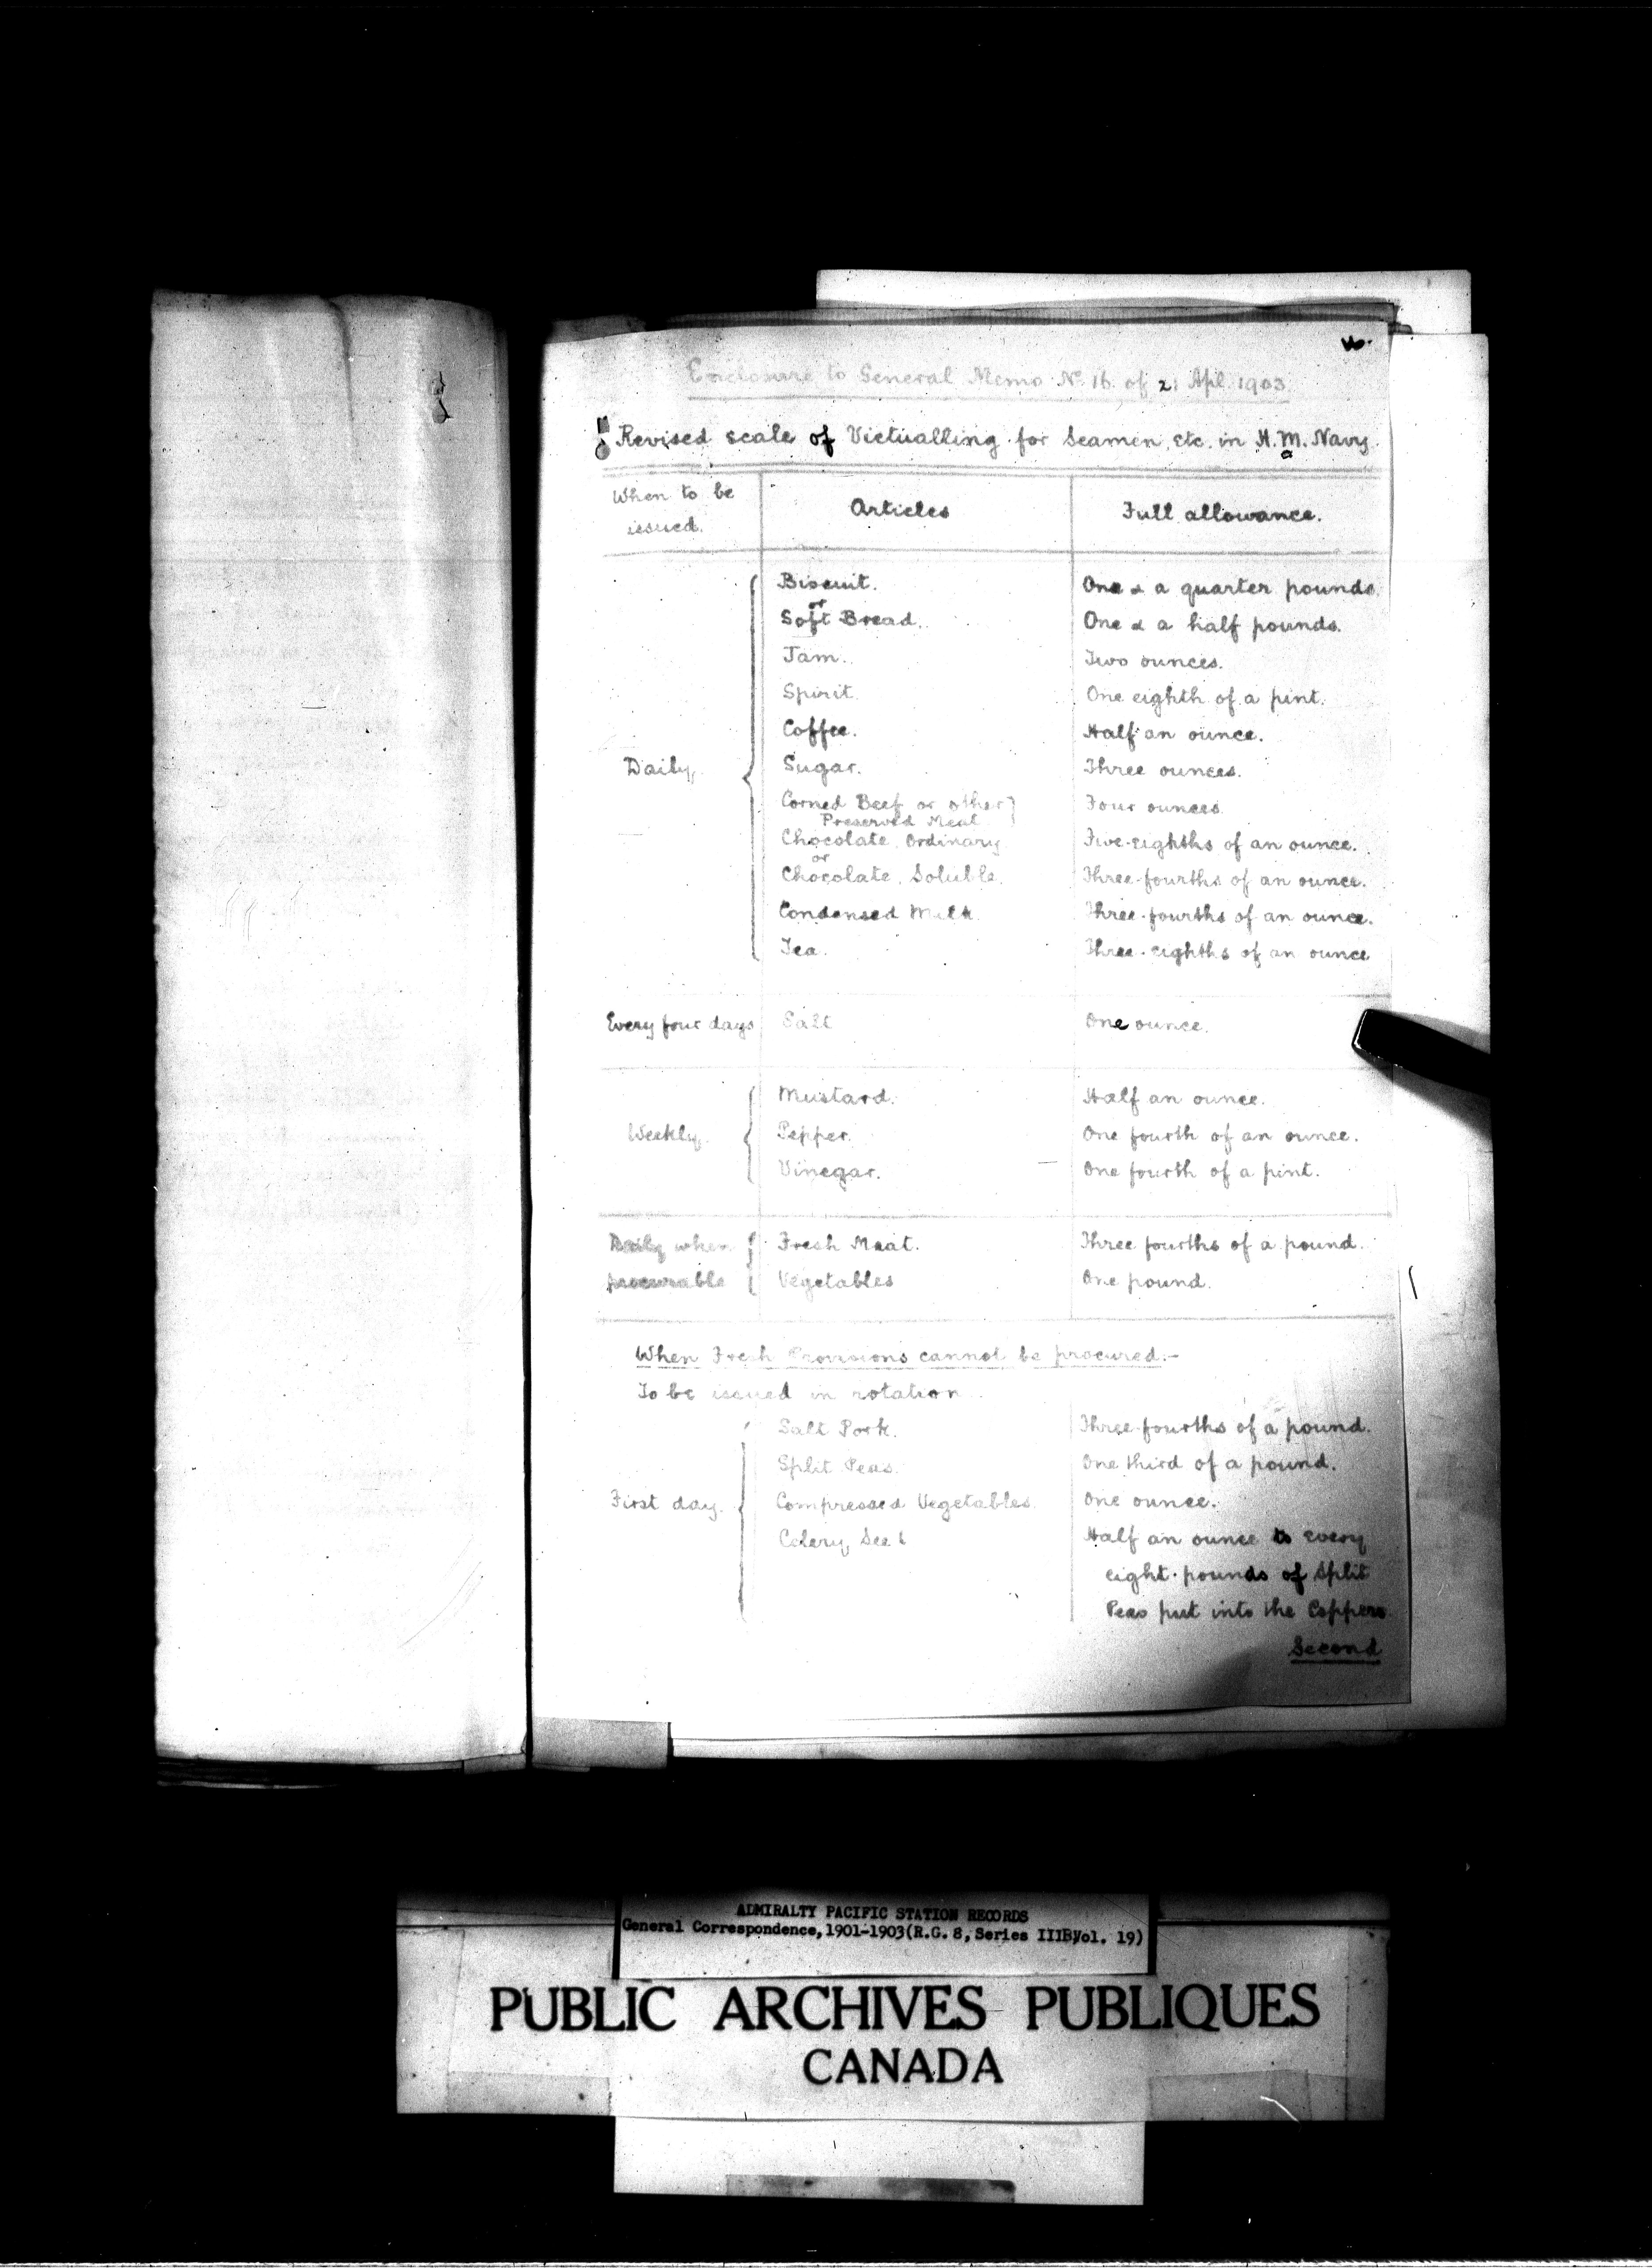 Enclosure to General Memo Nº 16 of 21 Apl. 1903.
Revised scale of Victualling for Seamen, etc. in H.M. Navy.
When to be issued. Articles Full allowance.
Daily.
Biscuit. One & a quarter pounds.
or
Soft Bread. One & a half pounds.
Jam. Two ounces.
Spirit. One eighth of a pint.
Coffee. Half an ounce.
Sugar. Three ounces.
Corned Beef or other Preserved Meat Four ounces.
Chocolate, Ordinary Five-eighths of an ounce.
or
Chocolate, Soluble. Three-fourths of an ounce.
Condensed Milk. Three-fourths of an ounce.
Tea. Three-eighths of an ounce
Every four days Salt One ounce.
Weekly.
Mustard. Half an ounce.
Pepper. One fourth of an ounce.
Vinegar. One fourth of a pint.
Daily when procurable
Fresh Meat. Three fourths of a pound.
Vegetables One pound.
When Fresh Provisions cannot be procured:-
To be issued in rotation
First day.
Salt Pork. Three-fourths of a pound.
Split Peas. One third of a pound.
Compressed Vegetables. One ounce.
Celery Seed Half an ounce to every
eight pounds of Split
Peas put into the Coppers.
Second
ADMIRALTY PACIFIC STATION RECORDS
General Correspondence, 1901-1903 (R.G. 8, Series IIIB, Vol. 19)
PUBLIC ARCHIVES PUBLIQUES
CANADA